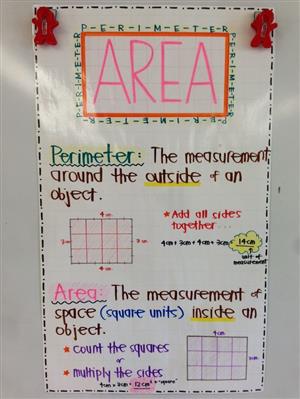 P-E-R-I-M-E-T-E-R
P-E-R-I-M-E-T-E-R
AREA
P-E-R-I-M-E-T-E-R
P-E-R-I-M-E-T-E-R
Perimeter: The measurement
around the outside of an
object.
4cm
3cm
3cm
4cm
★ Add all sides
together...
4cm + 3cm + 4cm + 3cm = 14cm
unit of
measurement
Area: The measurement of
space (square units) inside an
object.
★ count the squares
or
★ multiply the sides
4cm x 3cm = 12cm² ← "square"
4cm
3cm